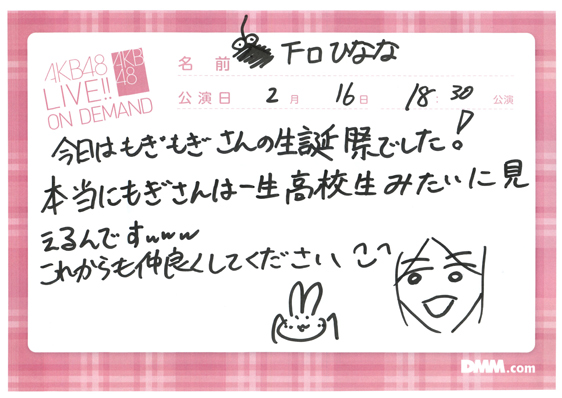 AKB48
LIVE!!
ON DEMAND
AKB
48
名 前 下口ひなな
公演日 2月 16日 18:30 公演
今日はもぎもぎさんの生誕祭でした!
本当にもぎさんは一生高校生みたいに見
えるんですwww
これからも仲良くしてください
DMM.com